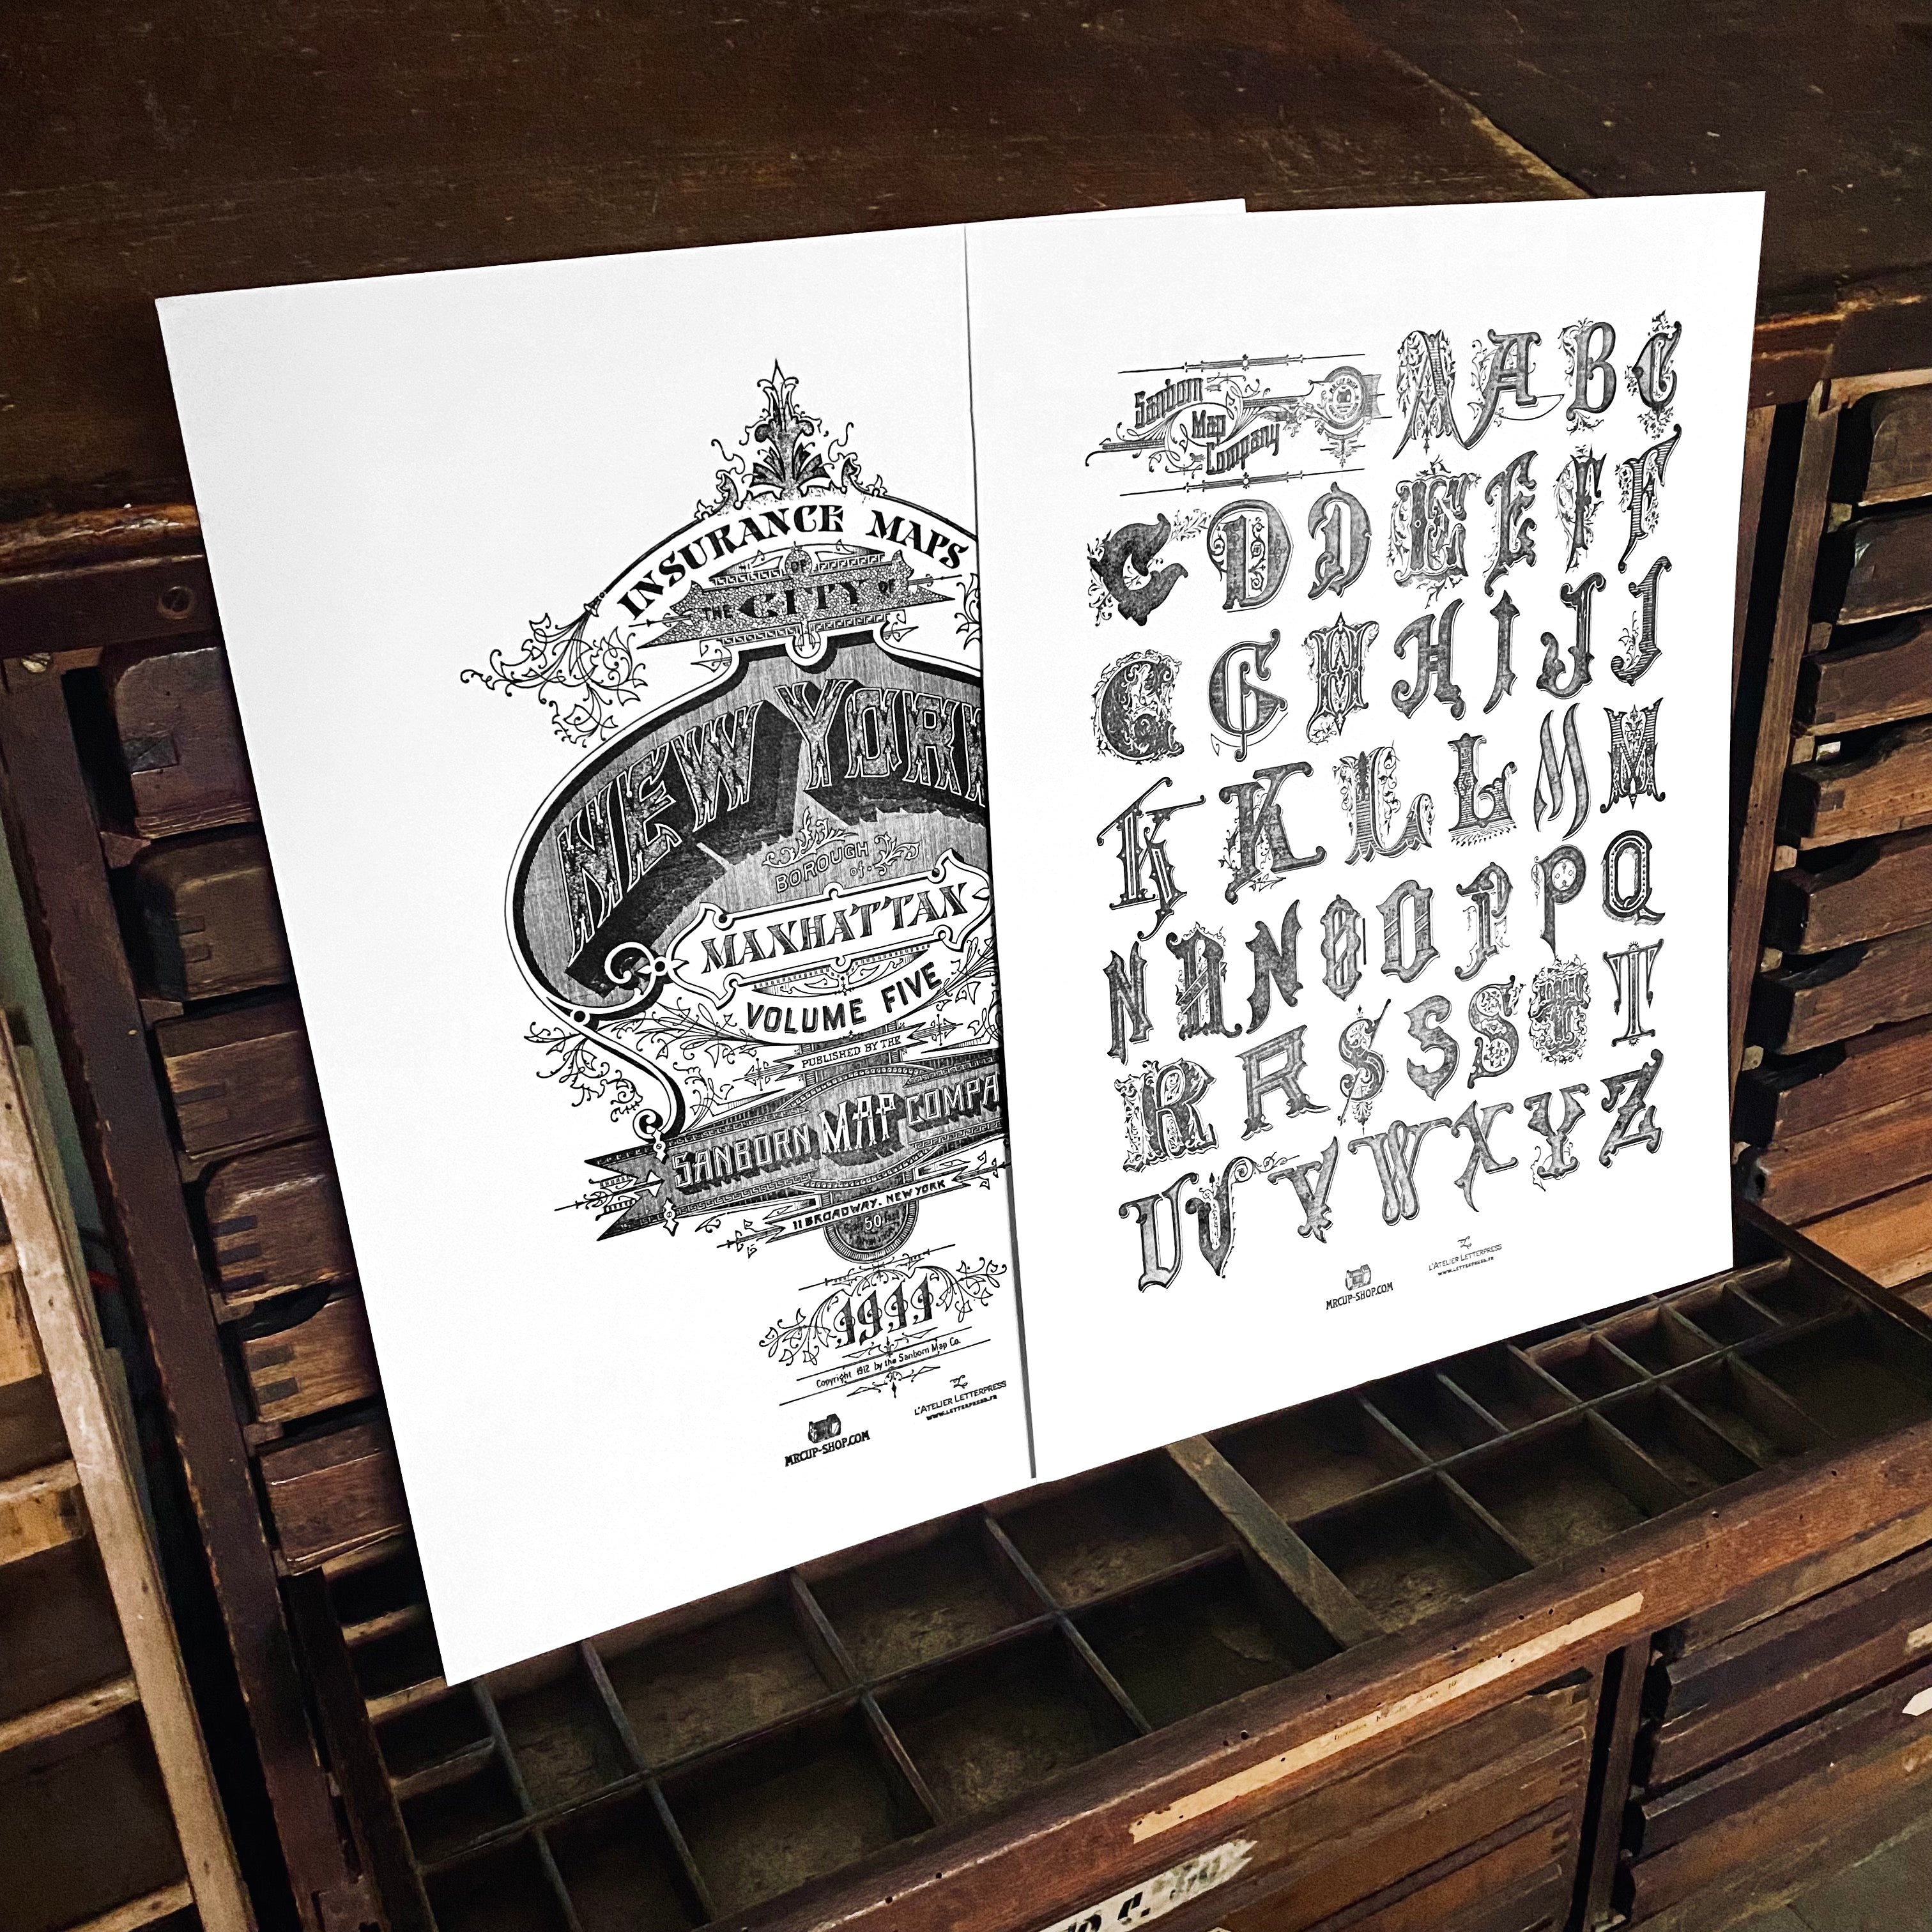 INSURANCE MAPS
OF
THE CITY OF
NEW YORK
BOROUGH
of
MANHATTAN
VOLUME FIVE
PUBLISHED BY THE
SANBORN MAP COMPA
11 BROADWAY. NEW YORK
50
1911
Copyright 1912 by the Sanborn Map Co.
MRCUP-SHOP.COM
L'ATELIER LETTERPRESS
WWW.LETTERPRESS.FR
Sanborn
Map
Company
A A B C
C D D E E F F
G G H H I J J
K K L L M M
N N N O O P P Q
R R S S S T T
U V V W X Y Z
MRCUP-SHOP.COM
L'ATELIER LETTERPRESS
WWW.LETTERPRESS.FR